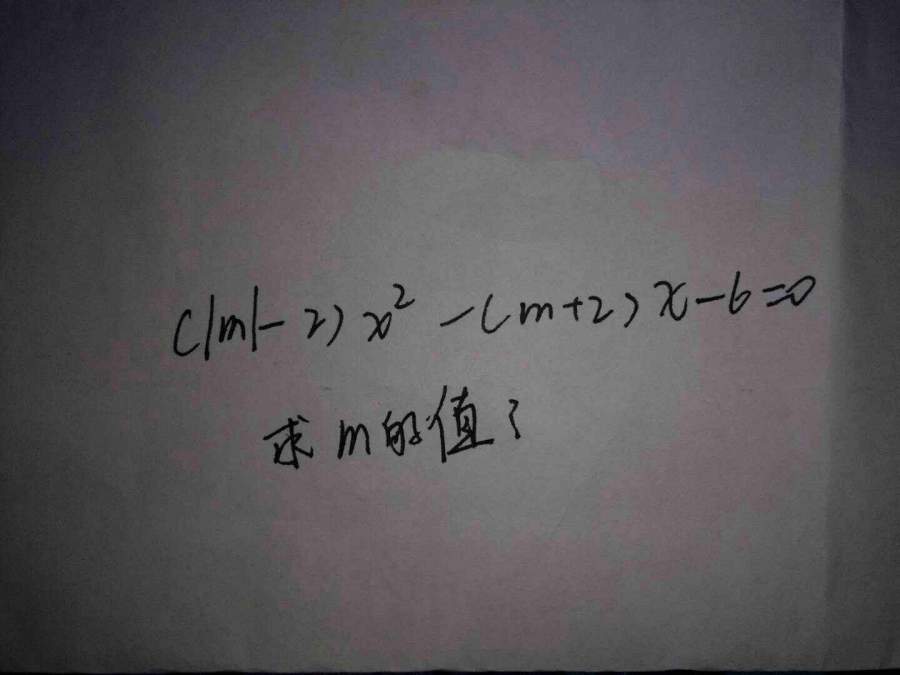 (|m|-2)x²-(m+2)x-6=0
求m的值?